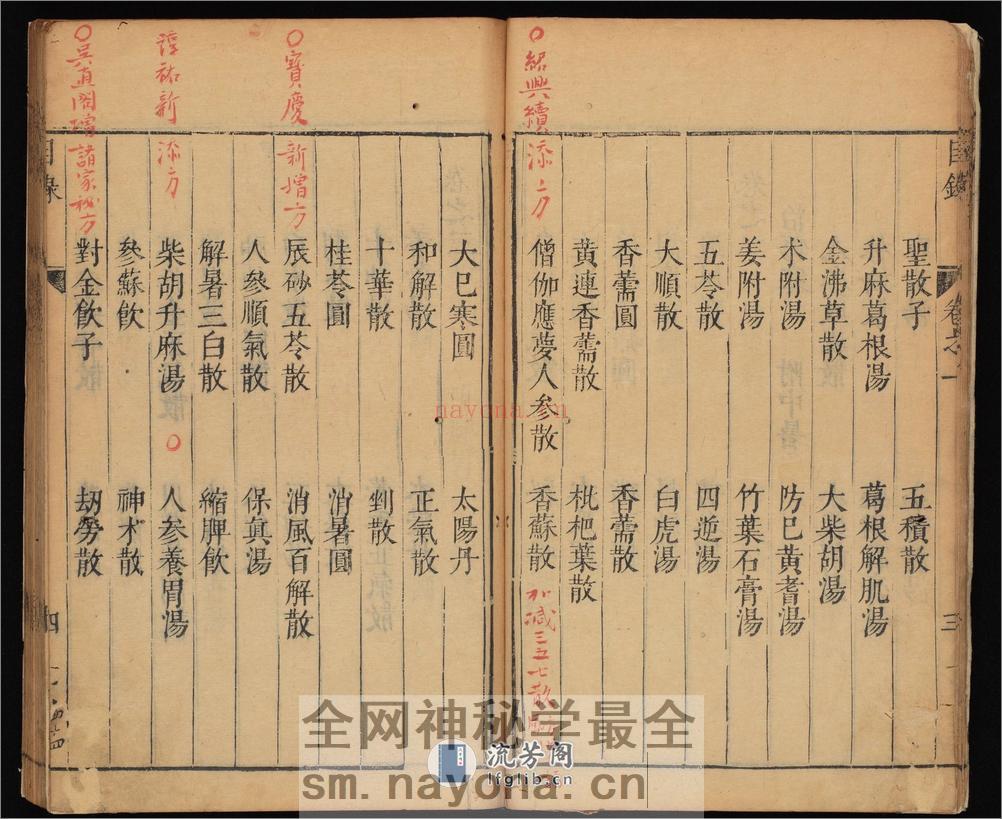 目錄 卷之一 三
聖散子 五積散
升麻葛根湯 葛根解肌湯
金沸草散 大柴胡湯
术附湯 防巳黃耆湯
姜附湯 竹葉石膏湯
五苓散 四逆湯
大順散 白虎湯
香薷圓 香薷散
黃連香薷散 枇杷葉散
○紹興續添方
僧伽應夢人參散 香蘇散 加减三五七散
大巳寒圓 太陽丹
和解散 正氣散
十華散 對散
桂苓圓 消暑圓
○寶慶新增方
辰砂五苓散 消風百解散
人參順氣散 保眞湯
解暑三白散 縮脾飲
淳祐新添方
柴胡升麻湯 ○ 人參養胃湯
參蘇飲 神术散
○吳直閣增諸家秘方
對金飲子 刼勞散
目錄 四
nayona.cn
全网神秘学最全
流芳阁
lfglib.cn
sm.nayona.cn